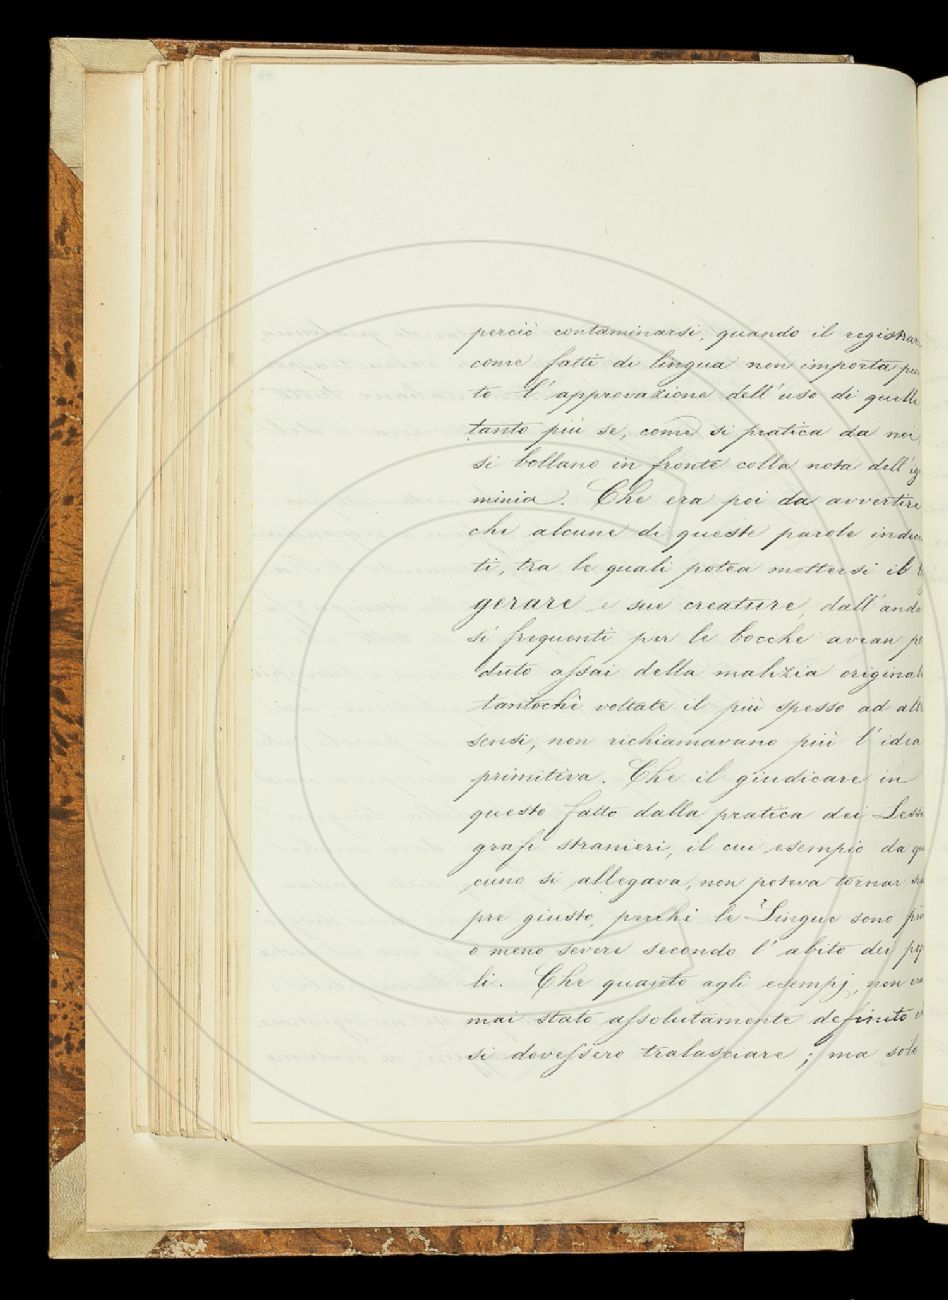 perciò contaminarsi, quando il registrar
come fatti di lingua non importa pun
to l'approvazione dell'uso di quelle
tanto più se, come si pratica da noi,
si bollano in fronte colla nota dell'ig
minia. Che era poi da avvertire
che alcune di queste parole indec
ti, tra le quali potea mettersi il
gerare e sue creature, dall'anda
si frequenti per le bocche avean pe
duto assai della malizia original
tantochè voltate il più spesso ad alt
sensi, non richiamavano più l'idea
primitiva. Che il giudicare in
questo fatto dalla pratica dei Lessi
grafi stranieri, il cui esempio da qu
cuno si allegava, non poteva tornar se
pre giusto, perchè le Lingue sono più
o meno severe secondo l'abito dei po
li. Che quanto agli esempj, non
mai stato assolutamente definito
si dovessero tralasciare; ma solo